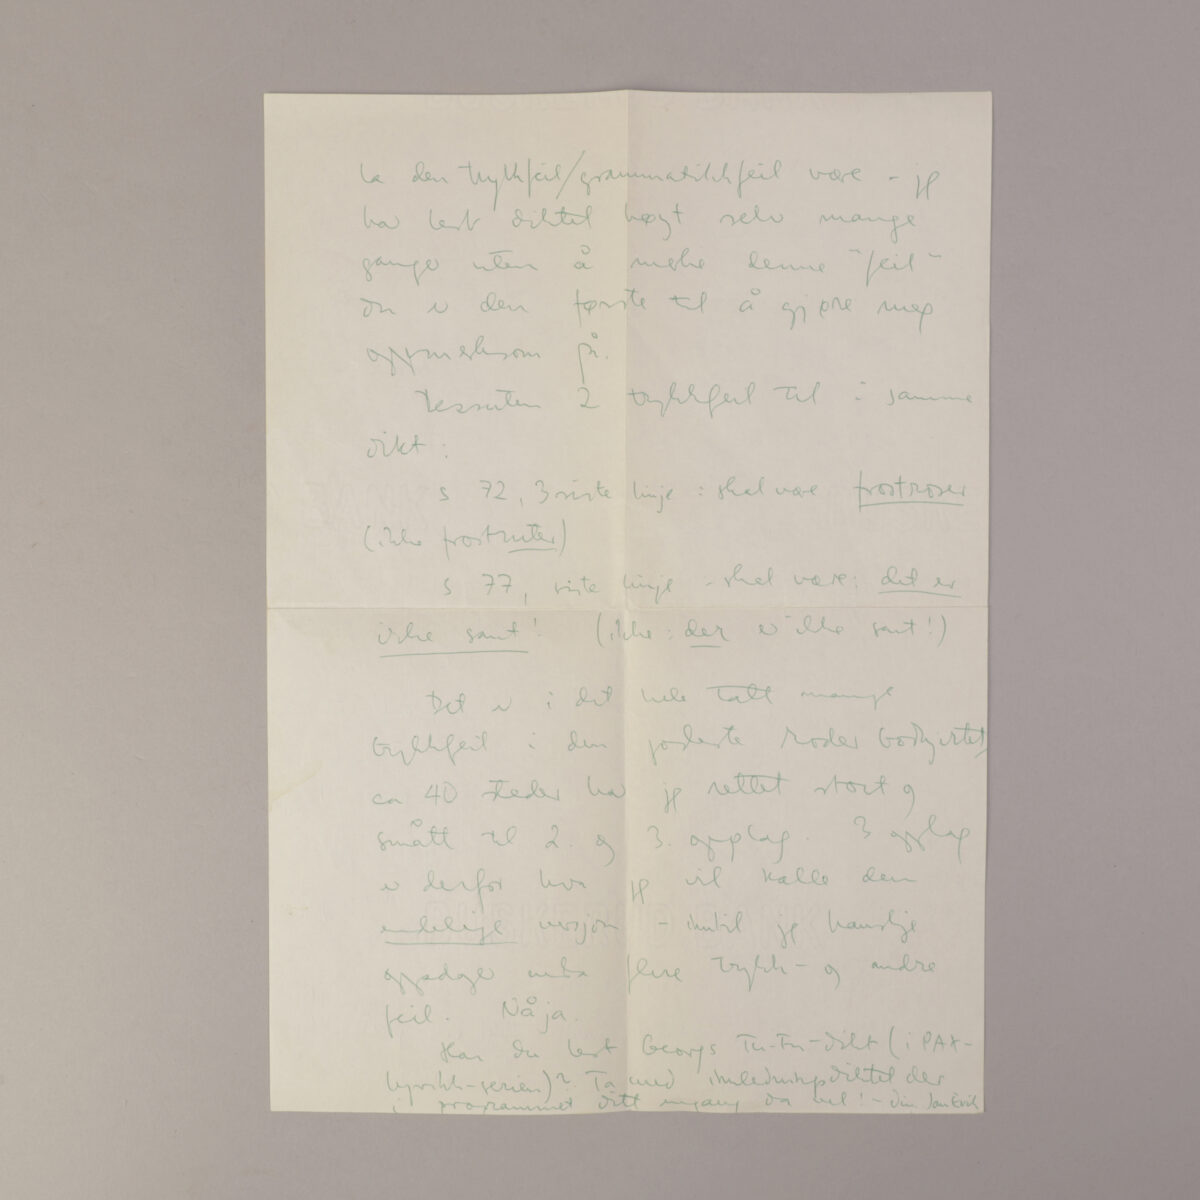 la den trykkfeil/grammatikkfeil være – jeg
har lest diktet høyt selv mange
ganger uten å merke denne "feil"
du er den første til å gjøre meg
oppmerksom på.
Dessuten 2 trykkfeil til i samme
dikt:
s 72, 3 siste linje : skal være frostroser
(ikke frostruter)
s 77, siste linje : skal være: det er
ikke sant! (ikke: der er ikke sant!)
Det er i det hele tatt mange
trykkfeil i den
ca 40 steder har jeg rettet stort og
smått til 2. og 3. opplag. 3 opplag
er derfor hva jeg vil kalle den
endelige versjon – inntil jeg kanskje
oppdager enda flere trykk- og andre
feil. Nåja.
Har du lest Georgs Tu-Fu-dikt (i PAX-
lyrikk-serien)? Ta med innledningsdiktet der
i programmet ditt engang da vel! – din Jan Erik